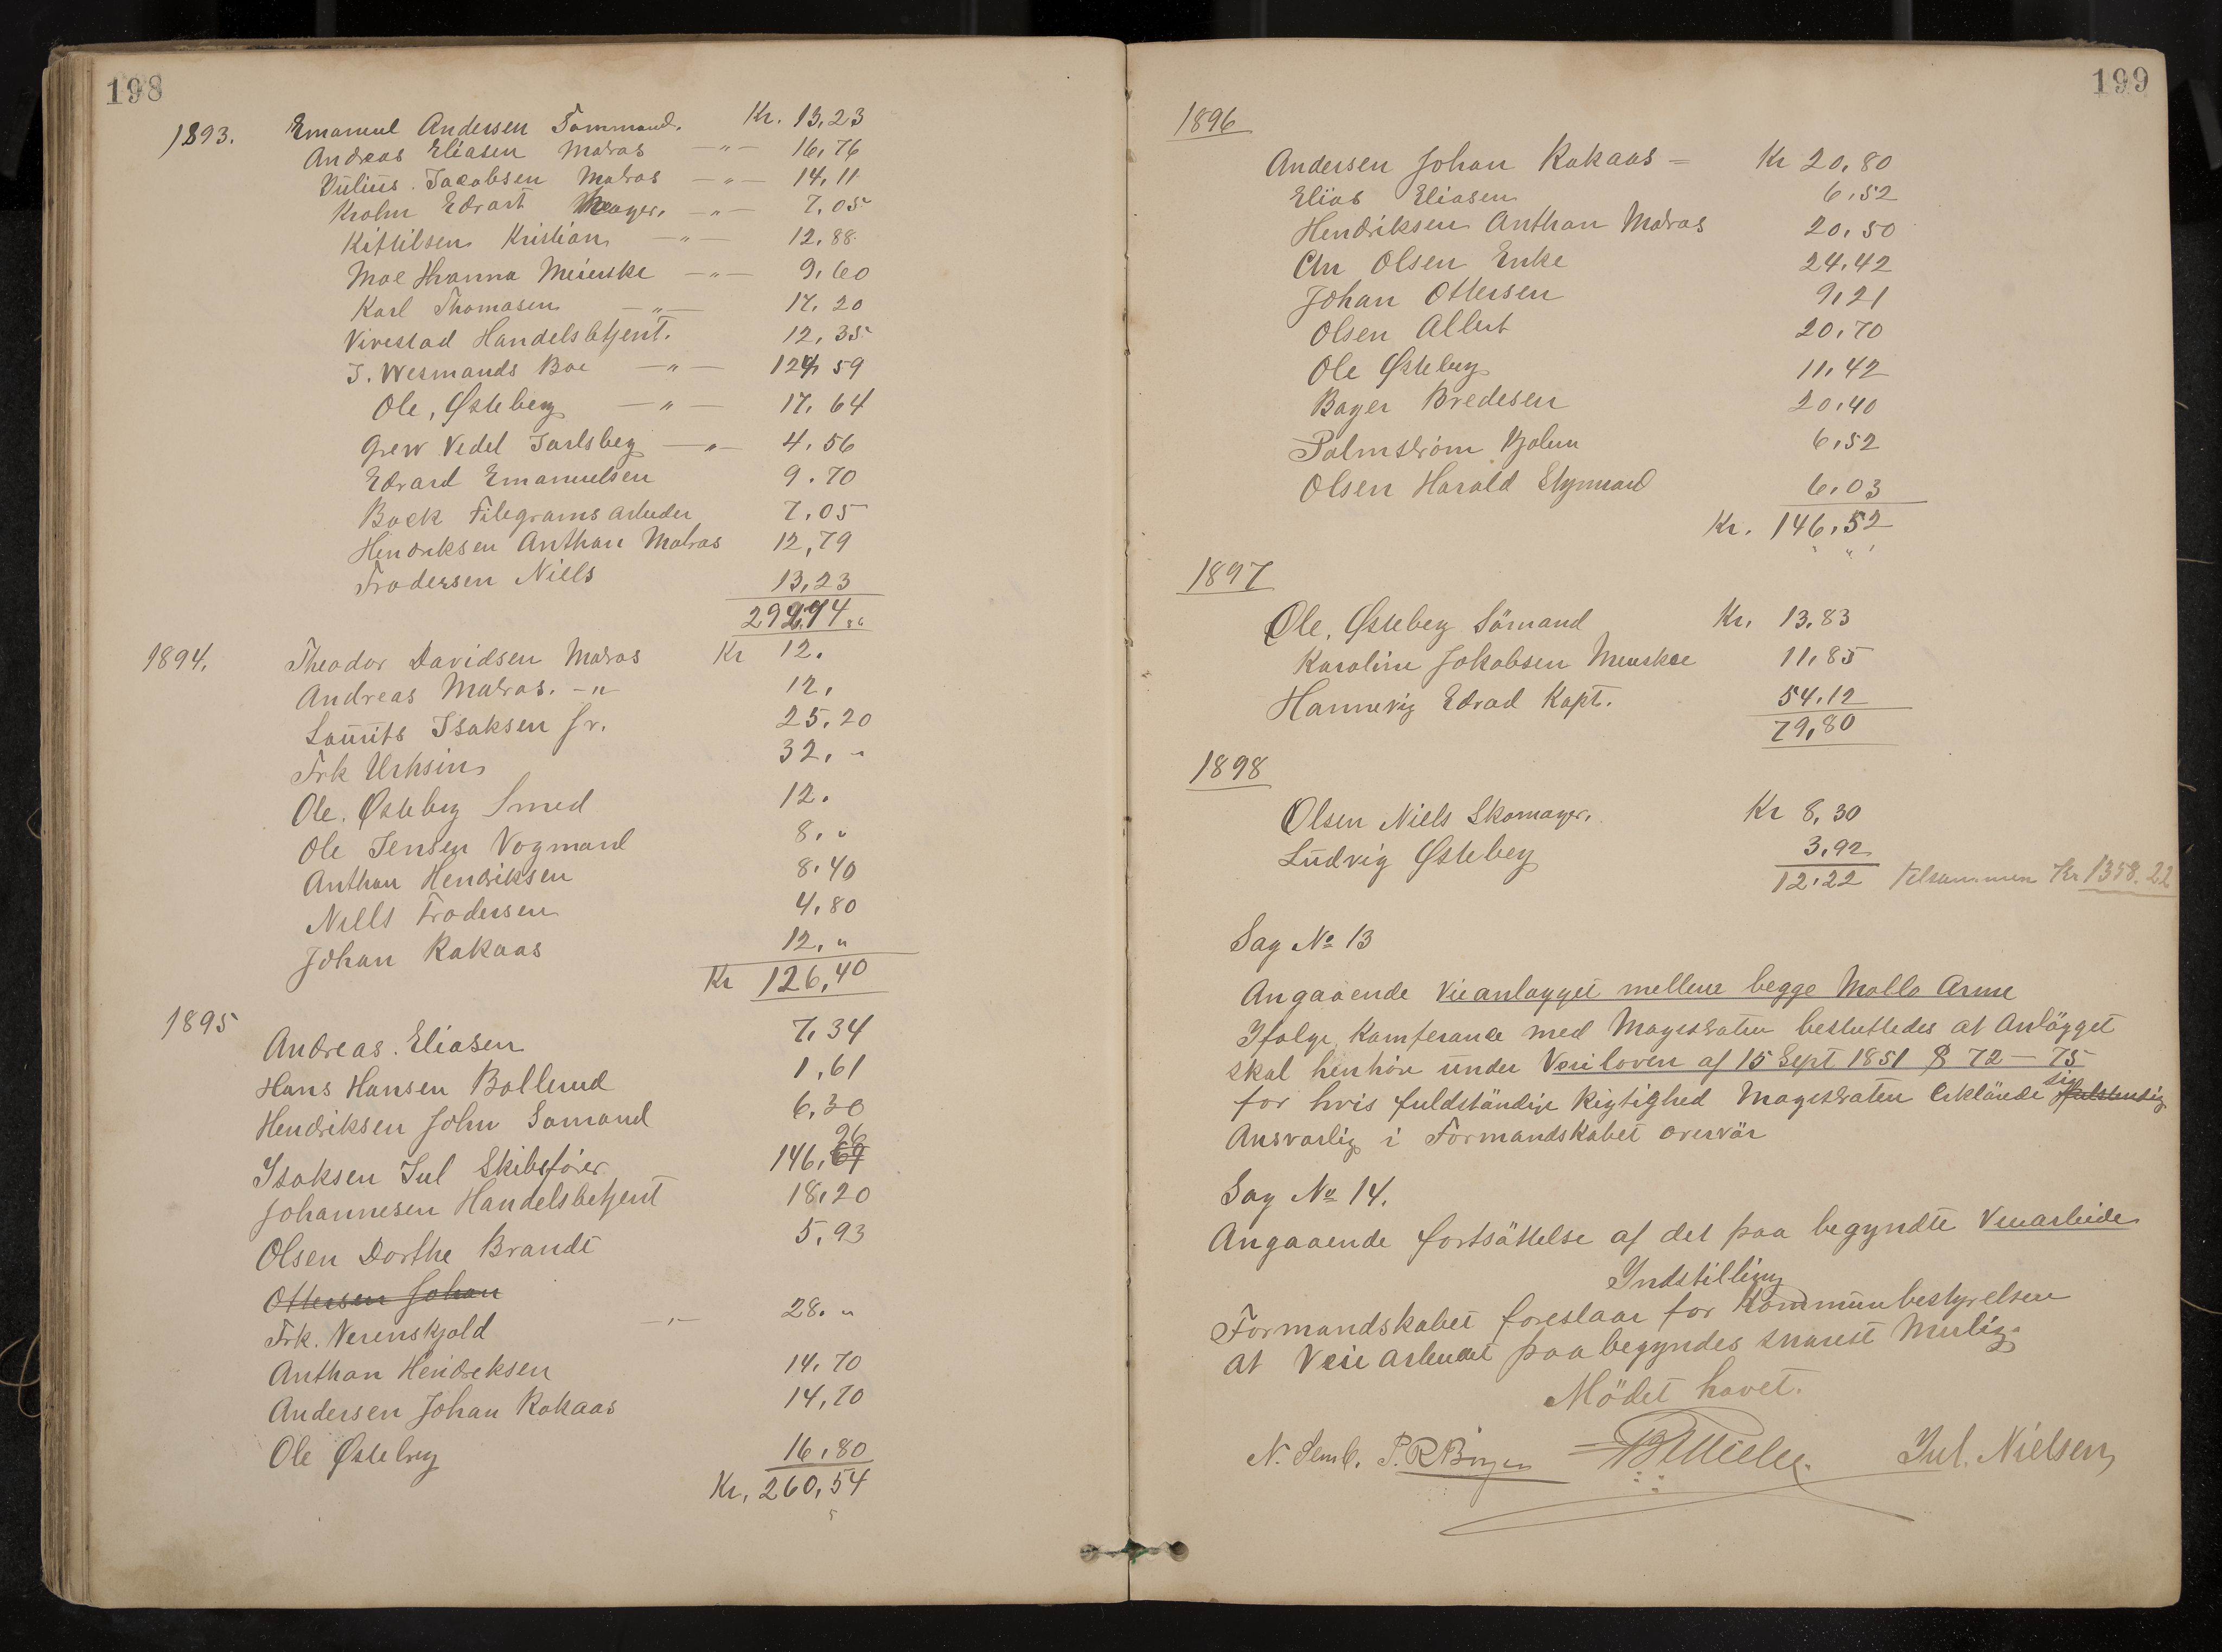 198
1893. Emanuel Andersen Sømmand. Kr. 13,23
Andreas Eliasen Matros —"— 16,76
Julius Jacobsen Matros —"— 14,11
Krohn Edvart —"— 7,05
Kittilsen Kristian —"— 12,88
Moe Hanna Meierske —"— 9,60
Karl Thomasen —"— 17,20
Virestad Handelsbetjent. 12,35
J. Wesmands Boe —"— 124,59
Ole, Østeberg —"— 17,64
Grew Vedel Jarlsberg —"— 4,56
Edvard Emanuelsen 9.70
Bock Filegrams arbeider 7,05
Hendriksen Anthon Matros 12,79
Frodersen Niels 13,23
1894. Theodor Davidsen Matros Kr 12.
Andreas Matros. —"— 12,
Laurits Isaksen Jr. 25.20
Frk 32. "
Ole. Østeberg Smed 12.
Ole Jensen Vogmand 8. "
Anthon Hendriksen 8.40
Niels Frodersen 4,80
Johan Rakaas 12. "
Kr 126,40
1895
Andreas. Eliasen 7,34
Hans Hansen Bollerud 1,61
Hendriksen John Sømand 6,30
26
Isaksen Jul Skibsfører 146,69
Johannesen Handelsbetjent 18,20
Olsen Dorthe Brandt 5,93
Ottersen Johan
Frk. Nerenskjold —"— 28. "
Anthon Hendreksen 14,70
Andersen Johan Rakaas 14,70
Ole Østebrg 16,80
Kr, 260,54
199
1896
Andersen Johan Rakaas = Kr 20,80
Elias Eliasen 6,52
Hendriksen Anthon Matros 20,50
Chr Olsen Enke 24,42
Johan Ottersen 9,21
Olsen Albert 20,70
Ole Østeberg 11,42
Bøger Bredesen 20,40
Palmstrøm Hjalm 6,52
Olsen Harald Stymand 6,03
Kr. 146,52
1897
Ole, Østeberg Sömand Kr. 13,83
Karoline Jakobsen Meierske 11,85
Hannevig Edvad Kapt. 54,12
79,80
1898
Olsen Niels Skomager. Kr 8,30
Ludvig Østeberg 3,92
12,22 Tilsammen Kr 1358.22
Sag No 13
Angaaende Vieanlægget mellem begge Mollo Arme
Ifølge Komferance med Magistraten besluttedes at Anlägget
skal henhöre under Veiloven af 15 Sept 1851 § 72 — 75
for hvis fuldständige Rigtighed Magistraten erklärede sig fulstendig
Ansvarlig i Formandskabet overvär
Sag No 14.
Angaaende fortsättelse af det paa begyndte Veiarbeide
Indstilling
Formandskabet foreslaar for Kommunbestyrelsen
at Veie arbeidet paabegyndes snarest Mulig.
Mödet hävet.
N. Semb. P. R Bøgen Jul. Nielsen